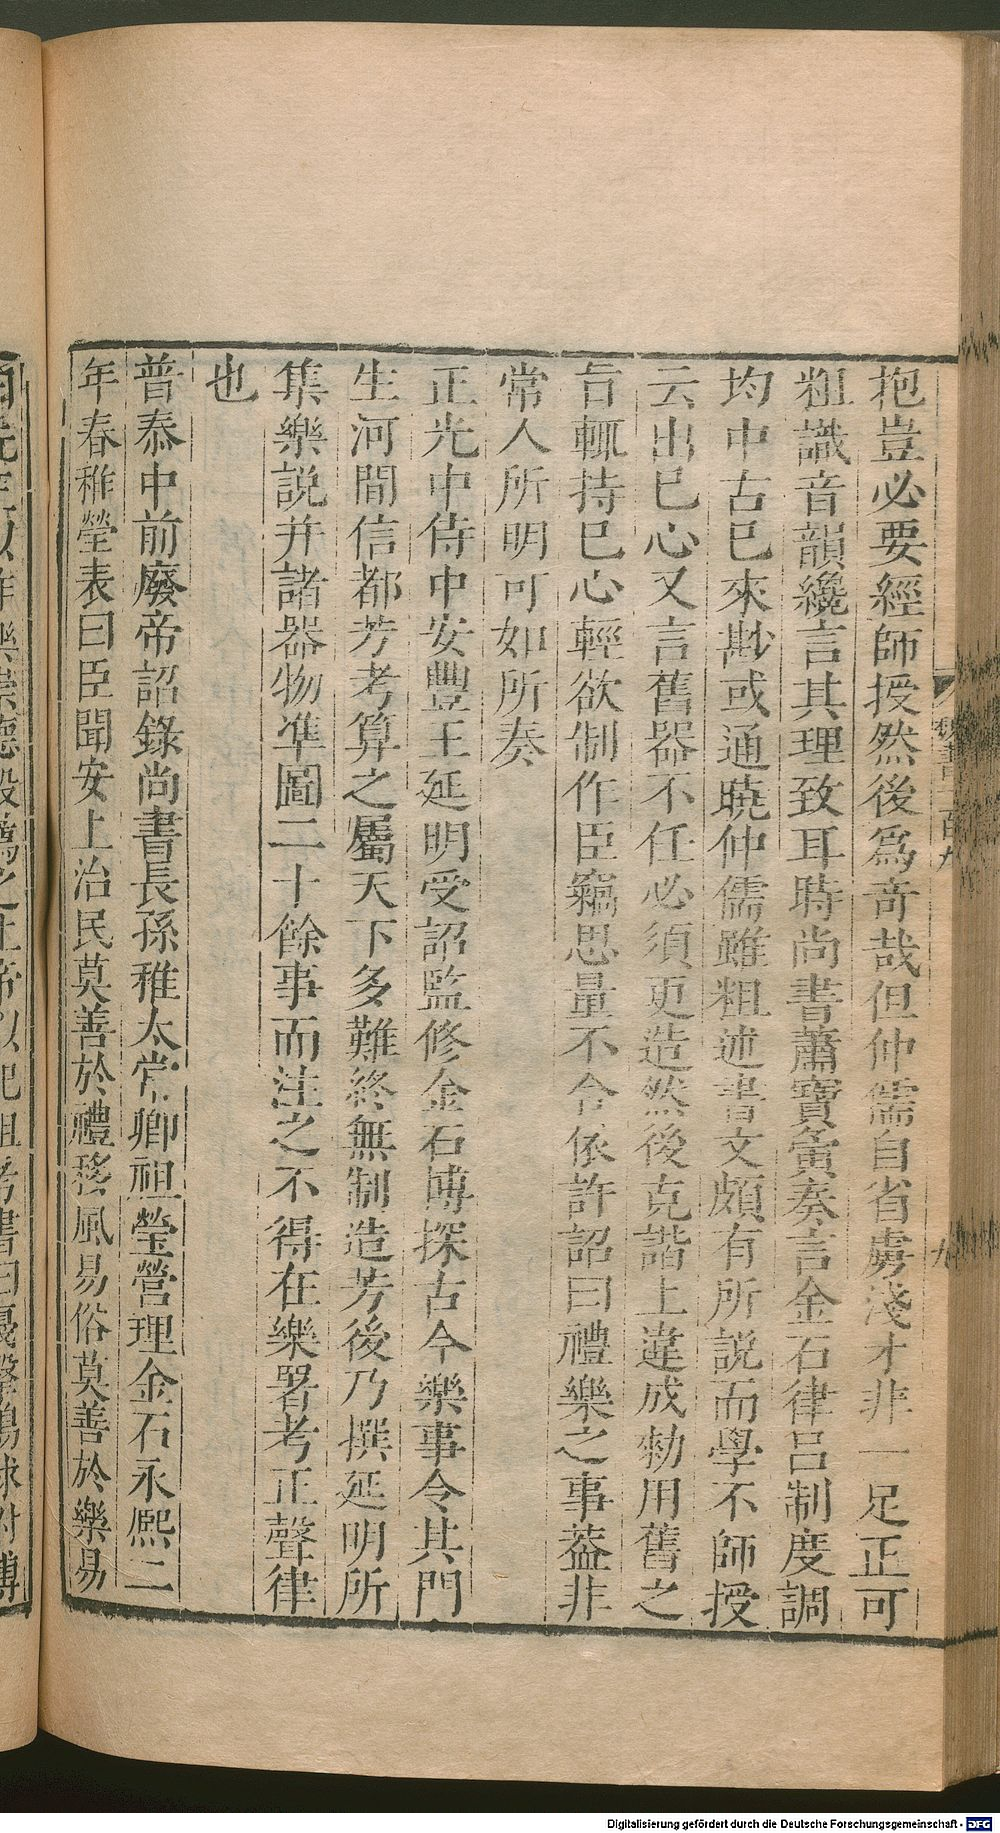 抱豈必要經師授然後爲奇哉但仲儒自省膚淺才非一足正可
粗識音韻纔言其理致耳時尚書蕭寶夤奏言金石律呂制度調
均中古已來尠或通曉仲儒雖粗述書文頗有所說而學不師授
云出已心又言舊器不任必須更造然後克諧上違成勑用舊之
旨輒持已心輕欲制作臣竊思量不合依許詔曰禮樂之事葢非
常人所明可如所奏
正光中侍中安豐王延明受詔監修金石博探古今樂事令其門
生河間信都芳考算之屬天下多難終無制造芳後乃撰延明所
集樂說并諸器物準圖二十餘事而注之不得在樂署考正聲律
也
普泰中前廢帝詔錄尚書長孫稚太常卿祖瑩營理金石永熙二
年春稚瑩表曰臣聞安上治民莫善於禮移風易俗莫善於樂易
曰先王以作樂崇德殷薦之上帝以配祖考書曰戛擊鳴球附搏
魏書一百九
九
Digitalisierung gefördert durch die Deutsche Forschungsgemeinschaft - DFG